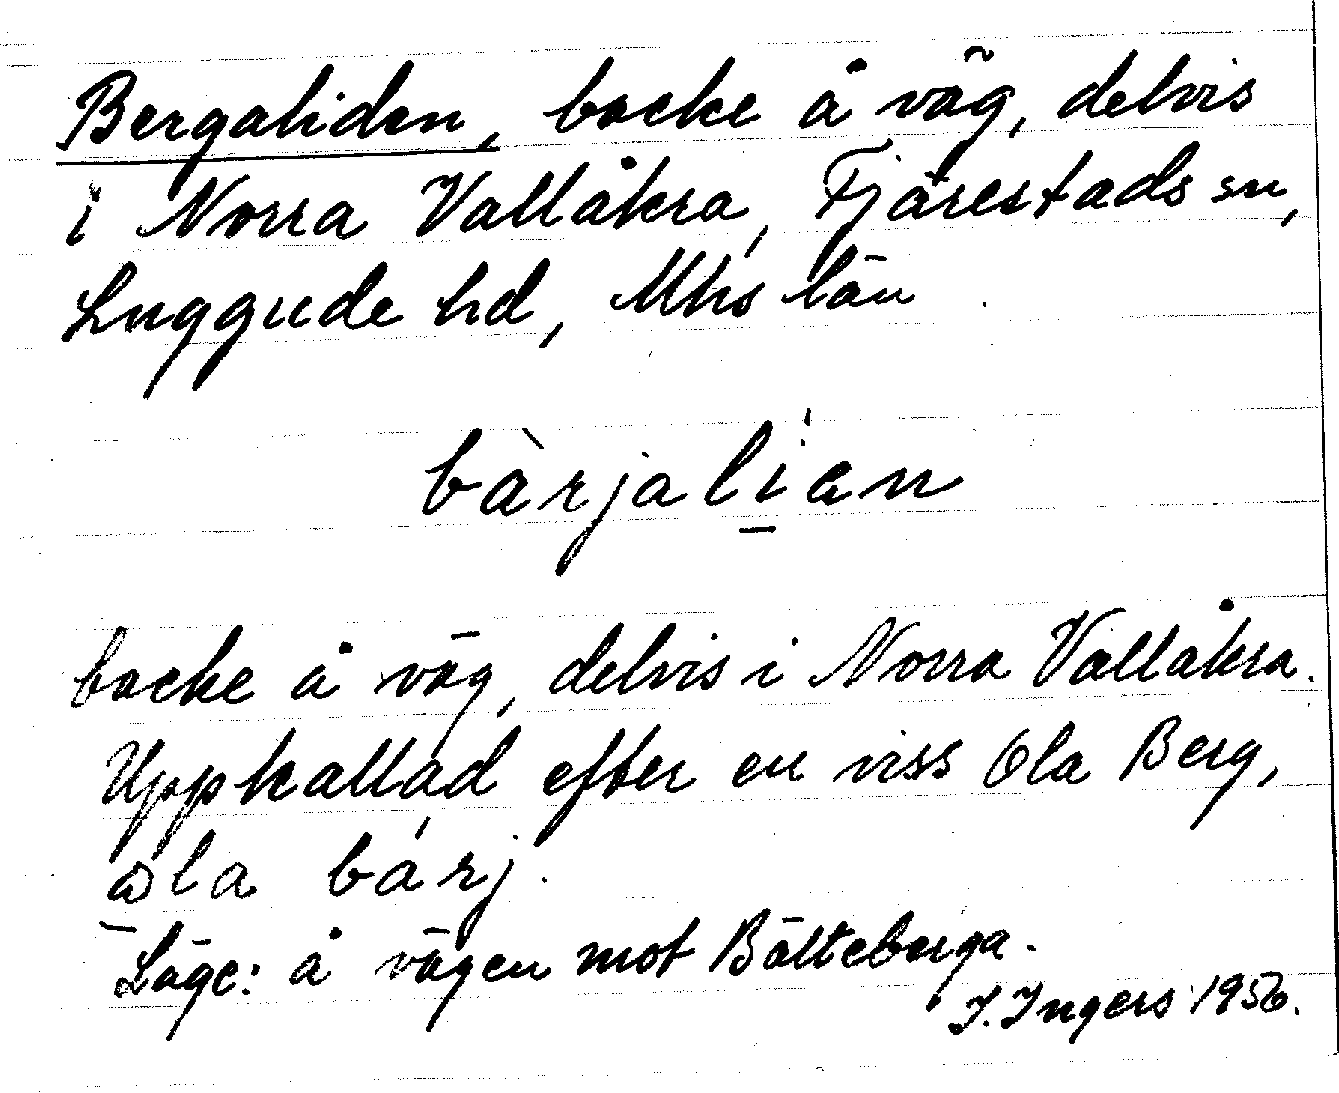 Bergaliden, backe å väg, delvis
i Norra Vallåkra, Fjärestads sn,
Luggude hd, Mhs län
bàrjali̱an
backe å väg, delvis i Norra Vallåkra.
Uppkallad efter en viss Ola Berg,
bárj.
Läge: å vägen mot Bälteberga.
I. Ingers 1956.